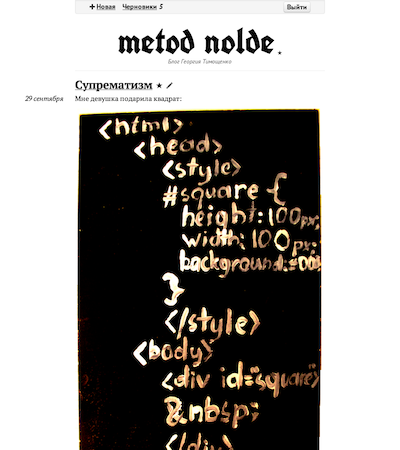 + Новая Черновики 5 Выйти
metod nolde.
Блог Георгия Тимощенко
Супрематизм
29 сентября Мне девушка подарила квадрат:
<html>
<head>
<style>
#square {
height: 100px;
width: 100px;
background: #00
}
</style>
<body>
<div id="square">
&nbsp;
</div>